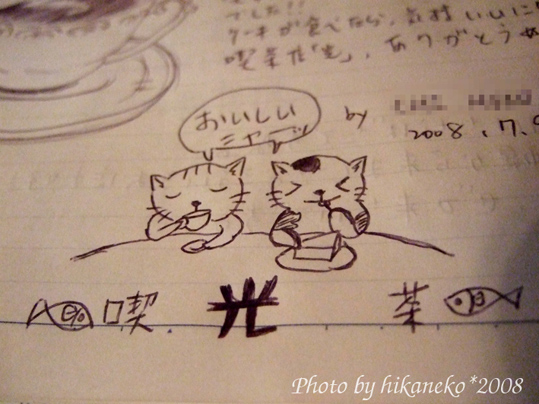 でした!!
ケーキが食べたら、気持いいに
喫茶店「光」、ありがとう
おいしい
ニャーッ
by
2008.7.
喫 光 茶
Photo by hikaneko*2008